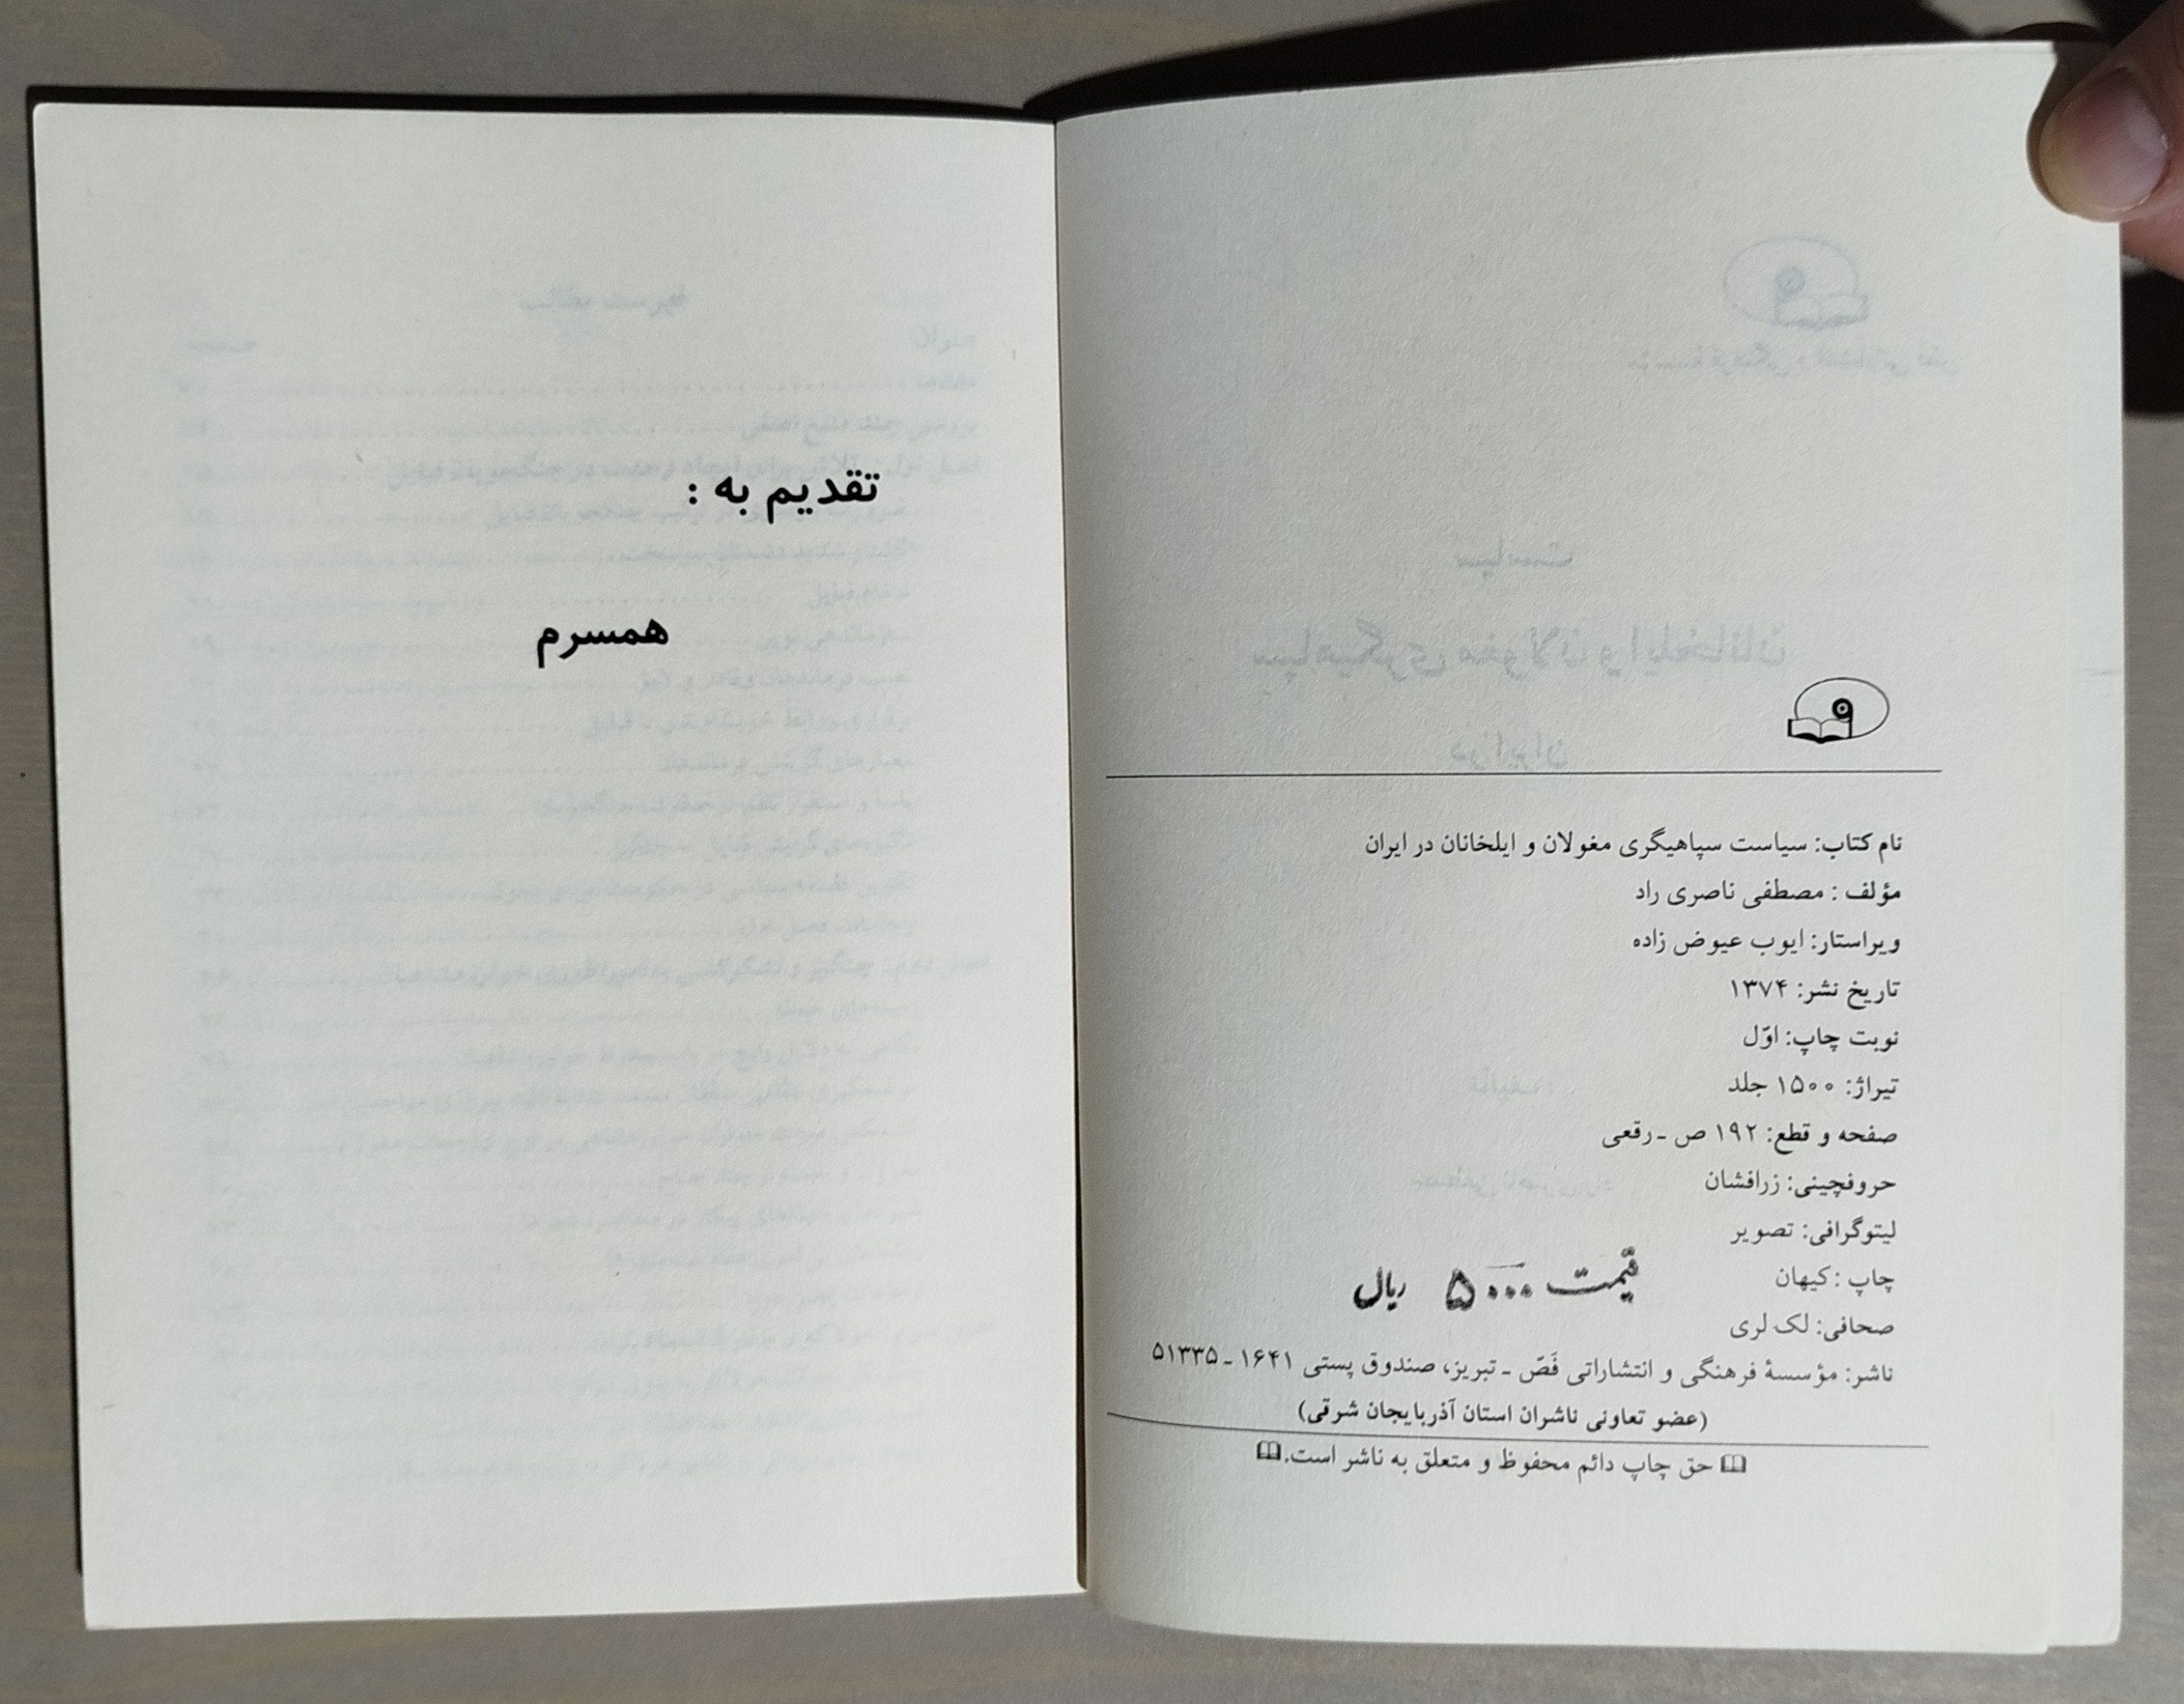 نام کتاب: سیاست سپاهیگری مغولان و ایلخانان در ایران
مؤلف : مصطفی ناصری راد
ویراستار: ایوب عیوض زاده
تاریخ نشر: ۱۳۷۴
نوبت چاپ: اوّل
تیراژ: ۱۵۰۰ جلد
صفحه و قطع: ۱۹۲ ص ـ رقعی
حروفچینی: زرافشان
لیتوگرافی: تصویر
چاپ : کیهان
قیمت ۵۰۰۰ ریال
صحافی: لک لری
ناشر: مؤسسهٔ فرهنگی و انتشاراتی فَصّ ـ تبریز، صندوق پستی ۱۶۴۱ ـ ۵۱۳۳۵
(عضو تعاونی ناشران استان آذربایجان شرقی)
حق چاپ دائم محفوظ و متعلق به ناشر است.
تقدیم به :
همسرم